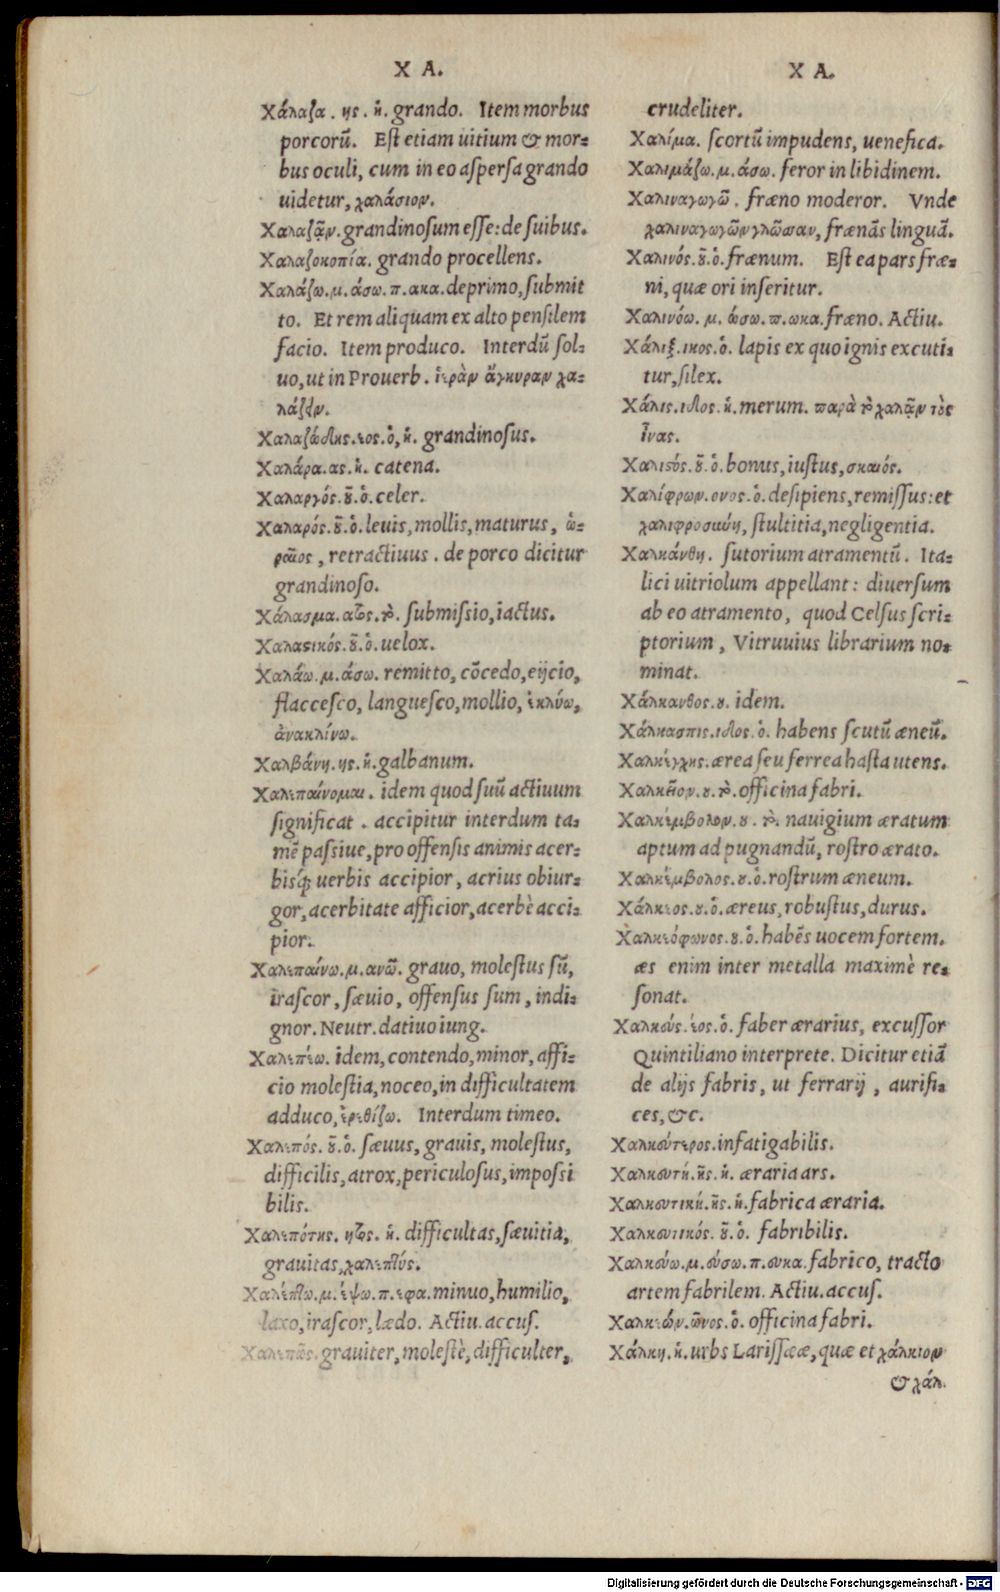 Χ Α.
Χάλαζα . ης. ἡ. grando. Item morbus
porcorũ. Est etiam uitium & mor-
bus oculi, cum in eo aspersa grando
uidetur, χαλάσιον.
Χαλαζᾷν. grandinosum esse: de suibus.
Χαλαζοκοπία. grando procellens.
Χαλάζω. μ. άσω. π. ακα. deprimo, submit
to. Et rem aliquam ex alto pensilem
facio. Item produco. Interdũ sol-
uo, ut in Prouerb. ἱερὰν ἄγκυραν χα-
λάζειν.
Χαλαζώδης. εος. ὁ, ἡ. grandinosus.
Χαλάρα. ας. ἡ. catena.
Χαλαργός. οῦ. ὁ. celer.
Χαλαρός. οῦ. ὁ. leuis, mollis, maturus, ὡ-
ραῖος, retractiuus. de porco dicitur
grandinoso.
Χάλασμα. ατος. τό. submissio, iactus.
Χαλαστικός. οῦ. ὁ. uelox.
Χαλάω. μ. άσω. remitto, cõcedo, eijcio,
flaccesco, languesco, mollio, ἐκλύω,
ἀνακλίνω.
Χαλβάνη. ης. ἡ. galbanum.
Χαλεπαίνομαι. idem quod suũ actiuum
significat. accipitur interdum ta-
mẽ passiue, pro offensis animis acer-
bisq́; uerbis accipior, acrius obiur-
gor, acerbitate afficior, acerbè acci-
pior.
Χαλεπαίνω. μ. ανῶ. grauo, molestus sũ,
irascor, sæuio, offensus sum, indi-
gnor. Neutr. datiuo iung.
Χαλεπέω. idem, contendo, minor, affi-
cio molestia, noceo, in difficultatem
adduco, ἐρεθίζω. Interdum timeo.
Χαλεπός. οῦ. ὁ. sæuus, grauis, molestus,
difficilis, atrox, periculosus, impossi
bilis.
Χαλεπότης. ητος. ἡ. difficultas, sæuitia,
grauitas, χαλεπτύς.
Χαλέπτω. μ. έψω. π. εφα. minuo, humilio,
laxo, irascor, lædo. Actiu. accus.
Χαλεπῶς. grauiter, molestè, difficulter,
Χ Α.
crudeliter.
Χαλίμα. scortũ impudens, uenefica.
Χαλιμάζω. μ. άσω. feror in libidinem.
Χαλιναγωγῶ. fræno moderor. Vnde
χαλιναγωγῶν γλῶσσαν, frænãs linguã.
Χαλινός. οῦ. ὁ. frænum. Est ea pars fræ-
ni, quæ ori inseritur.
Χαλινόω. μ. ώσω. π. ωκα. fræno. Actiu.
Χάλιξ. ικος. ὁ. lapis ex quo ignis excuti-
tur, silex.
Χάλις. ιδος. ἡ. merum. παρὰ τὸ χαλᾷν τὸς
ἶνας.
Χαλιστός. οῦ. ὁ. bonus, iustus, σκαιός.
Χαλίφρων. ονος. ὁ. desipiens, remissus: et
χαλιφροσύνη, stultitia, negligentia.
Χαλκάνθη. sutorium atramentũ. Ita-
lici uitriolum appellant: diuersum
ab eo atramento, quod Celsus scri-
ptorium, Vitruuius librarium no-
minat.
Χάλκανθος. ου. idem.
Χάλκασπις. ιδος. ὁ. habens scutũ æneũ.
Χαλκέγχης. ærea seu ferrea hasta utens.
Χαλκεῖον. ου. τό. officina fabri.
Χαλκέμβολον. ου. τό. nauigium æratum
aptum ad pugnandũ, rostro ærato.
Χαλκέμβολος. ου. ὁ. rostrum æneum.
Χάλκεος. ου. ὁ. æreus, robustus, durus.
Χαλκεόφωνος. ου. ὁ. habẽs uocem fortem.
æs enim inter metalla maximè re-
sonat.
Χαλκεύς. έος. ὁ. faber ærarius, excussor
Quintiliano interprete. Dicitur etiã
de alijs fabris, ut ferrarij, aurifi-
ces, &c.
Χαλκεύτερος. infatigabilis.
Χαλκευτή. ῆς. ἡ. æraria ars.
Χαλκευτική. ῆς. ἡ. fabrica æraria.
Χαλκευτικός. οῦ. ὁ. fabribilis.
Χαλκεύω. μ. εύσω. π. ευκα. fabrico, tracto
artem fabrilem. Actiu. accus.
Χαλκεών. ῶνος. ὁ. officina fabri.
Χάλκη. ἡ. urbs Larissææ, quæ et χάλκιον
& χάλ.
Digitalisierung gefördert durch die Deutsche Forschungsgemeinschaft - DFG